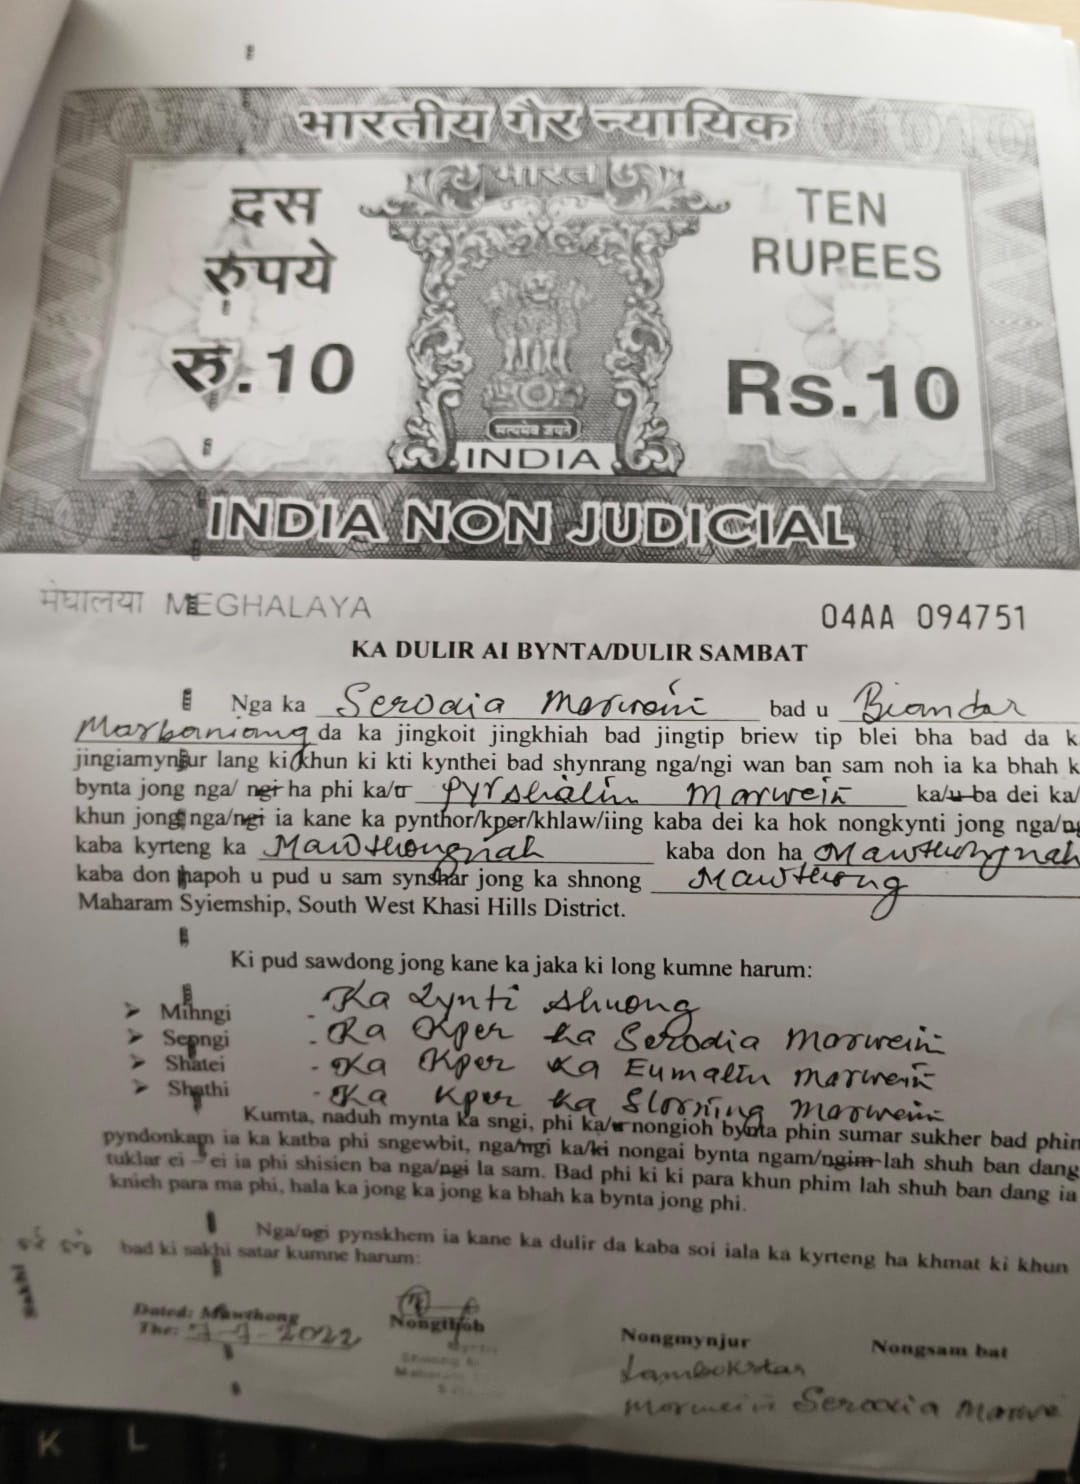 भारतीय गैर न्यायिक
भारत
दस
रुपये
रु.10
TEN
RUPEES
Rs.10
सत्यमेव जयते
INDIA
INDIA NON JUDICIAL
मेघालया MEGHALAYA
04AA 094751
KA DULIR AI BYNTA/DULIR SAMBAT
Nga ka Serodia Marwein bad u Biandar
Marbaniang da ka jingkoit jingkhiah bad jingtip briew tip blei bha bad da k
jingiamynjur lang ki khun ki kti kynthei bad shynrang nga/ngi wan ban sam noh ia ka bhah k
bynta jong nga/ ngi ha phi ka/u Pyrshalin Marwein ka/u ba dei ka/
khun jong nga/ngi ia kane ka pynthor/kper/khlaw/iing kaba dei ka hok nongkynti jong nga/ng
kaba kyrteng ka Mawthongnah kaba don ha Mawthongnah
kaba don hapoh u pud u sam synshar jong ka shnong Mawthong
Maharam Syiemship, South West Khasi Hills District.
Ki pud sawdong jong kane ka jaka ki long kumne harum:
➢ Mihngi - Ka Lynti shnong
➢ Sepngi - Ka Kper ka Serodia Marwein
➢ Shatei - Ka Kper ka Eumalin Marwein
➢ Shathi - Ka Kper ka Slorning Marwein
Kumta, naduh mynta ka sngi, phi ka/u nongioh bynta phin sumar sukher bad phin
pyndonkam ia ka katba phi sngewbit, nga/ngi ka/ki nongai bynta ngam/ngim lah shuh ban dang
tuklar ei – ei ia phi shisien ba nga/ngi la sam. Bad phi ki ki para khun phim lah shuh ban dang ia
knieh para ma phi, hala ka jong ka jong ka bhah ka bynta jong phi.
Nga/ngi pynskhem ia kane ka dulir da kaba soi iala ka kyrteng ha khmat ki khun
bad ki sakhi satar kumne harum:
Sakhi
Dated: Mawthong
The: 2022
Nongthoh
Nongmynjur
Nongsam bat
Lambokstar
Marwein Serodia Marwe
K L